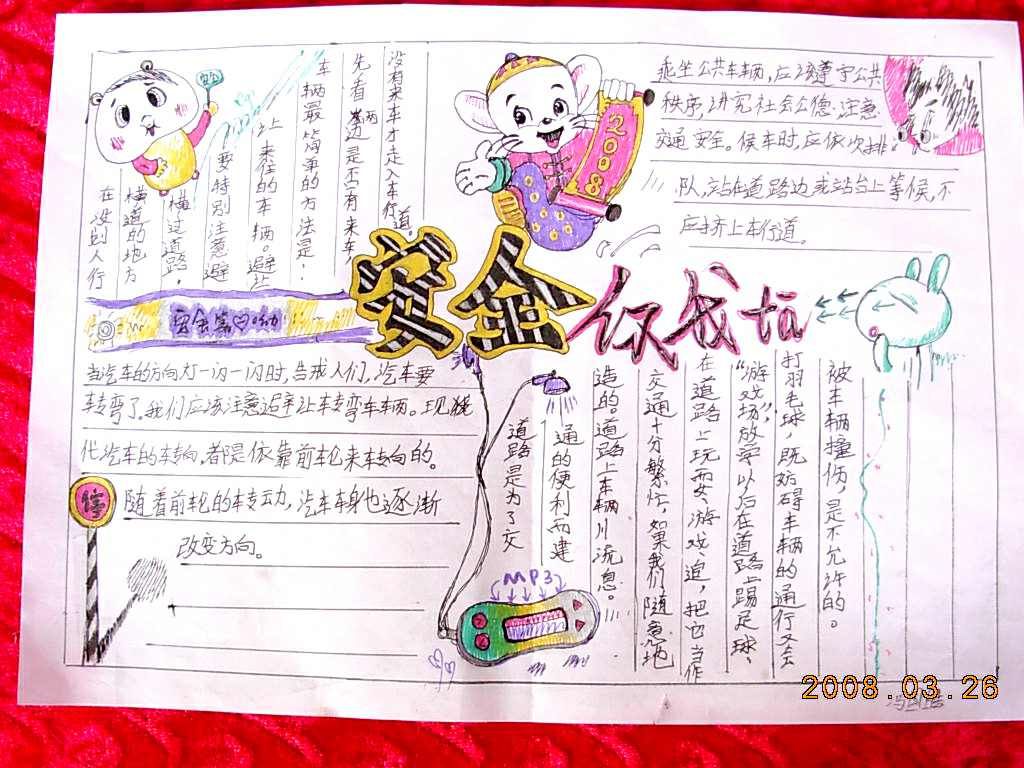 安全你我他
2008
在没划人行
横道的地方
横过道路,
要特别注意避
让来往的车辆。避让
车辆最简单的方法是:
先看两边是否有来车,
没有来车才走入车行道。
乘坐公共车辆,应该遵守公共
秩序,讲究社会公德,注意
交通安全。候车时,应依次排
队,站在道路边或站台上等候,不
应挤上车行道。
当汽车的方向灯一闪一闪时,告戒人们,汽车要
转弯了,我们应该注意避让转弯车车辆。现
代汽车的转向,都是依靠前轮来转向的。
随着前轮的转动,汽车车身也逐渐
改变方向。
停
道路是为了交
通的便利而建
造的。道路上车辆川流息。
交通十分繁忙,如果我们随意地
在道路上玩耍、游戏追,把它当作
“游戏场”,放学以后在道路上踢足球、
打羽毛球,既妨碍车辆的通行又会
被车辆撞伤,是不允许的。
MP3
2008.03.26